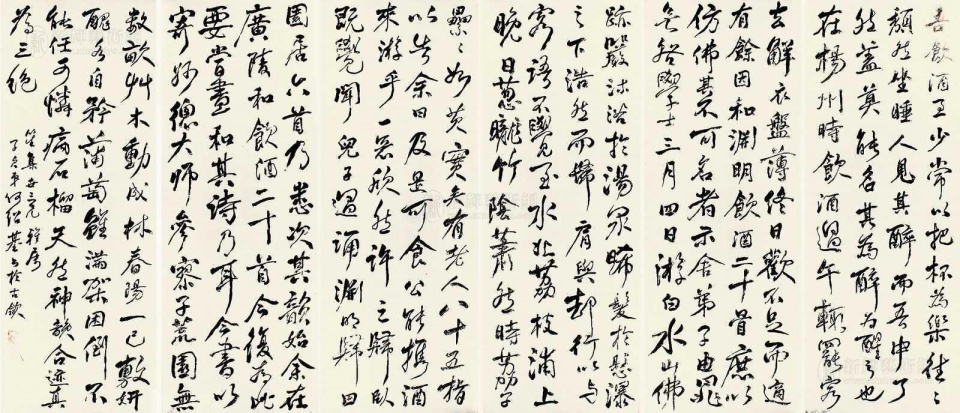 吾飲酒至少常以把杯為樂往〻
頹然坐睡人見其醉而吾中了
然蓋莫能名其為醉為醒之也
在楊州時飲酒過午輒罷客
去解衣盤薄終日歡不足而適
有餘因和淵明飲酒二十首庶以
仿佛其不可名者示舍弟子由晁
無咎學士三月四日游白水山佛
跡巖沐浴於湯泉晞髮於懸瀑
之下浩然而歸肩輿却行以与
客語不覺至水北荔枝浦上
晚日蔥曨竹陰蕭然時荔子
纍〻如芡實矣有老人八十五指
以告余曰及是可食公能攜酒
來游乎一欣然許之歸臥
既覺聞兒子過誦淵明歸田
園居六首乃悉次其韻始余在
廣陵和飲酒二十首今復為此
要當盡和其詩乃耳今書以
寄妙總大師參寥子荒園無
數畝艸木動成林春陽一已敷妍
醜各自矜蒲萄雖滿架囷倒不
能任可憐病石榴天然神韻合迹真
為三絕
丁亥年何紹基書於古